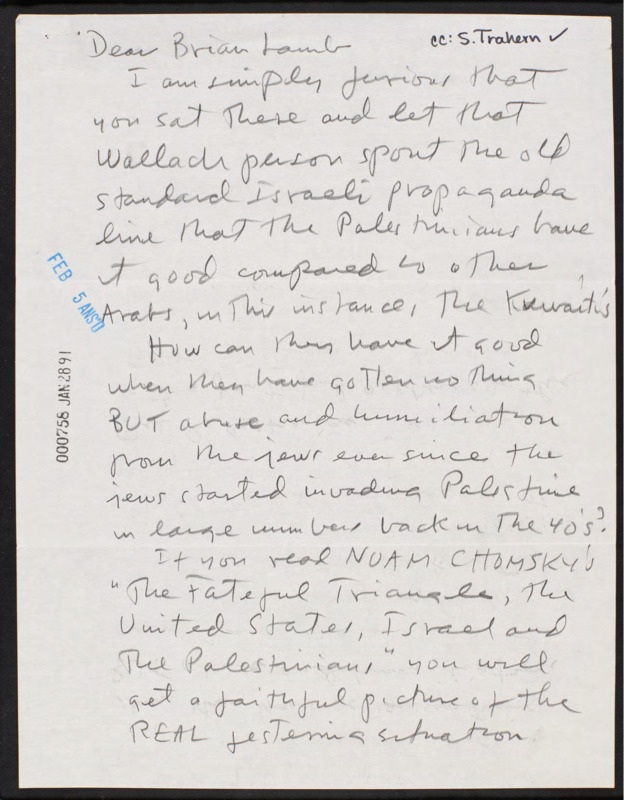 Dear Brian Lamb
cc: S. Trahern ✓
I am simply furious that
you sat there and let that
Wallach person spout the old
standard Israeli propaganda
line that the Palestinians have
it good compared to other
Arabs, in this instance, the Kuwaiti's
How can they have it good
when they have gotten nothing
BUT abuse and humiliation
from the jews ever since the
jews started invading Palestine
in large numbers back in the 40's?
If you read NOAM CHOMSKY's
"The Fateful Triangle, the
United States, Israel and
The Palestinians" you will
get a faithful picture of the
REAL festering situation.
FEB 5 ANS'D
000756 JAN2891